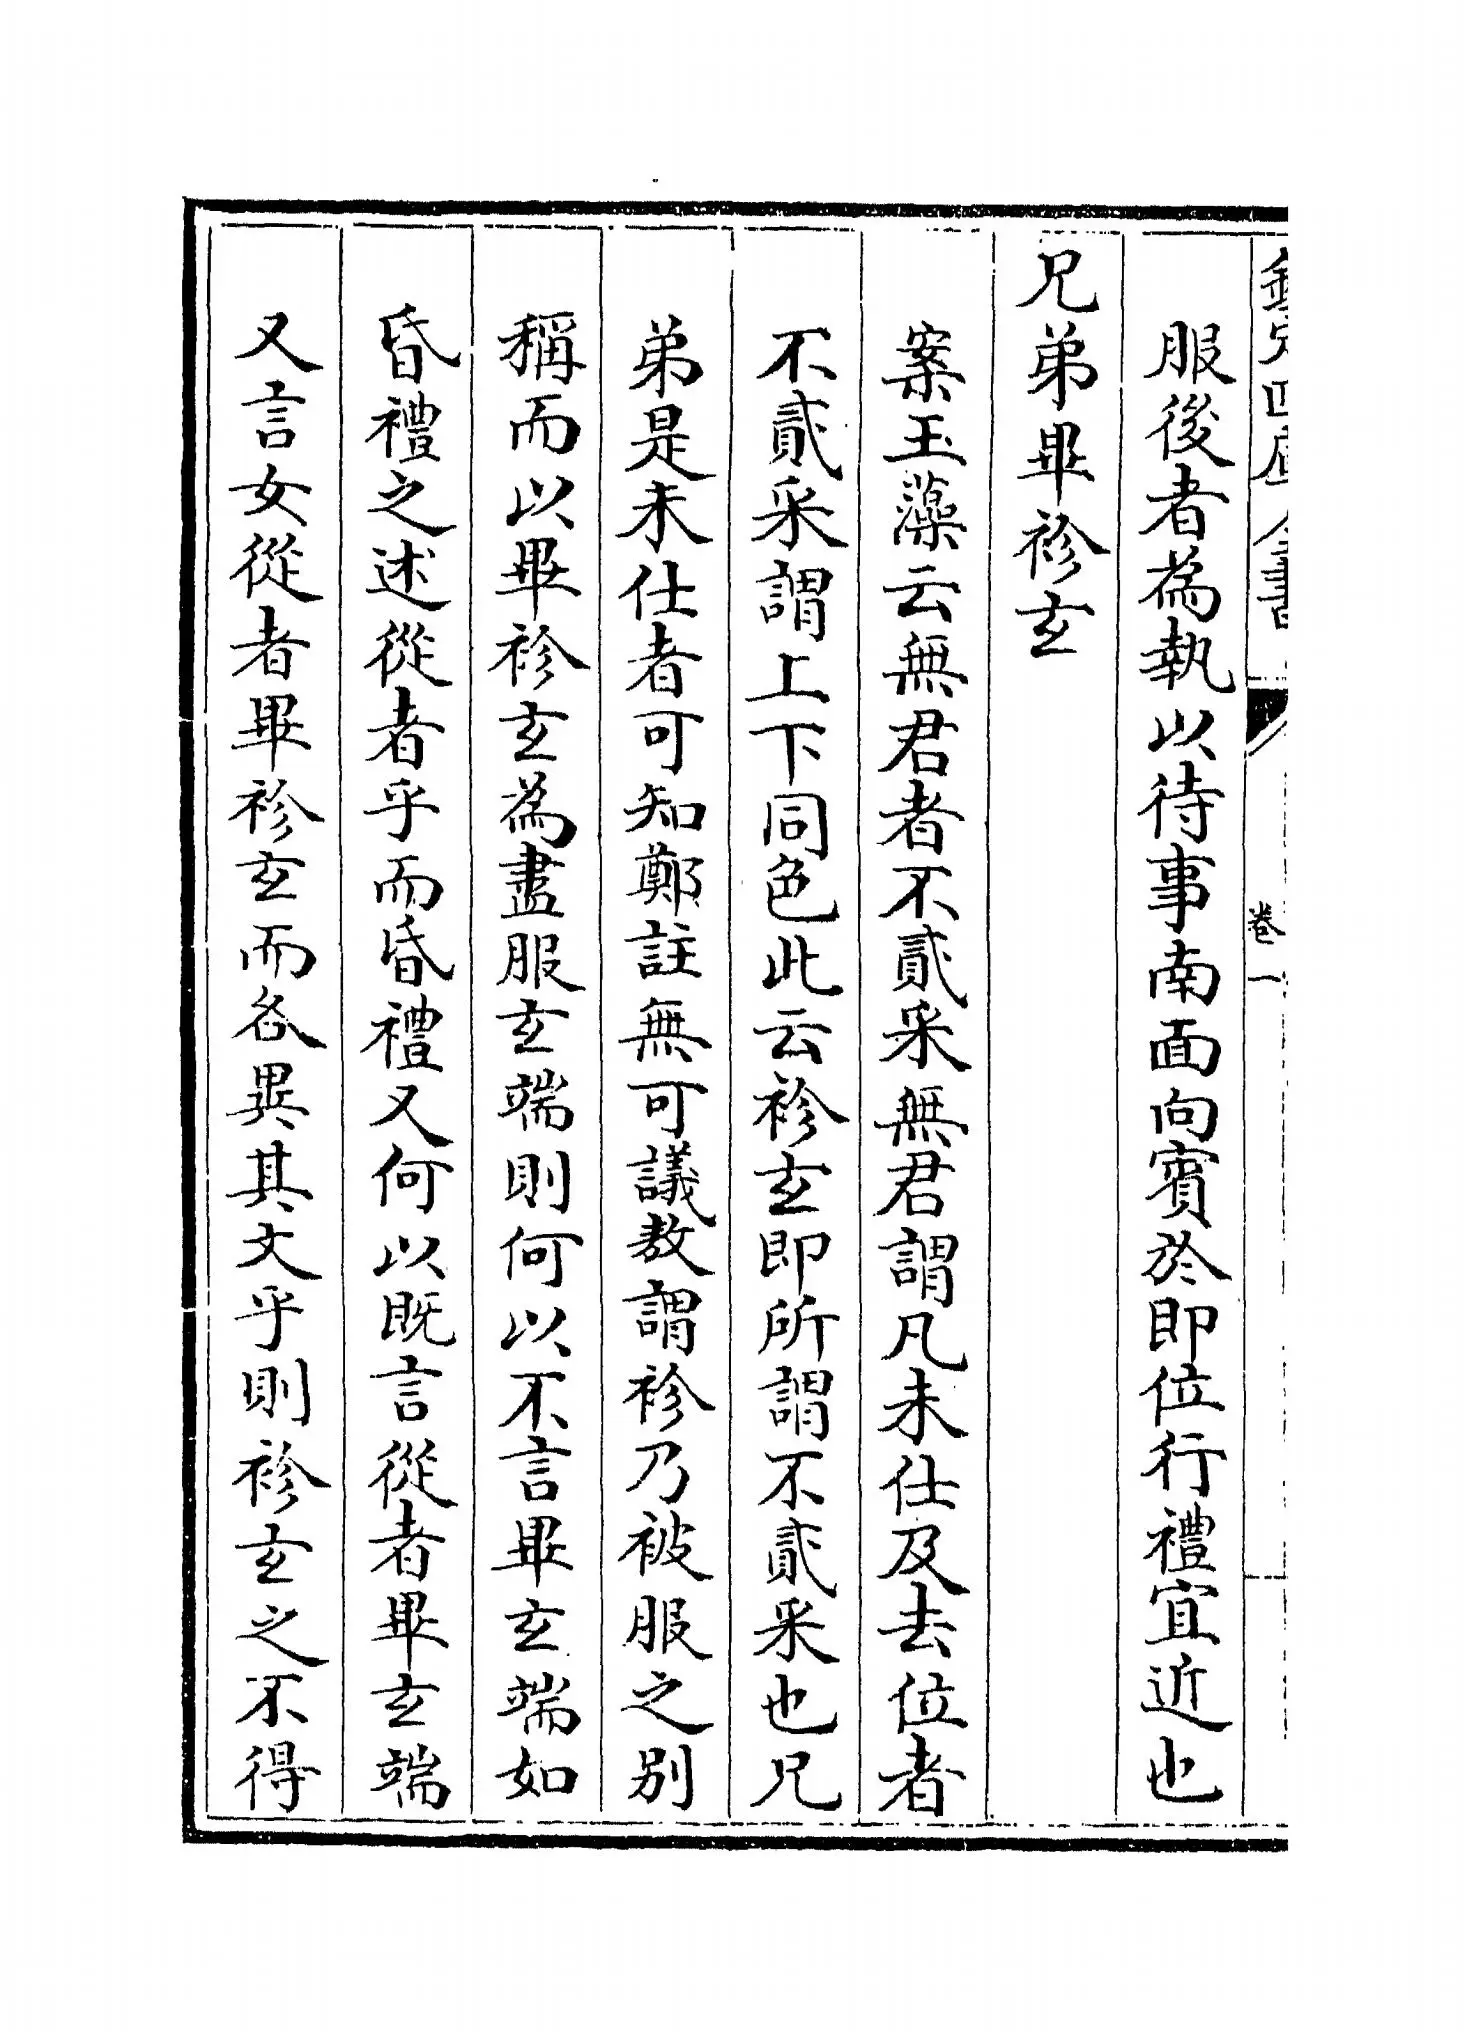 欽定四庫全書
卷一
服後者為執以待事南面向賓於即位行禮宜近也
兄弟畢袗玄
案玉藻云無君者不貳采無君謂凡未仕及去位者
不貳采謂上下同色此云袗玄即所謂不貳采也兄
弟是未仕者可知鄭註無可議敖謂袗乃被服之別
稱而以畢袗玄為盡服玄端則何以不言畢玄端如
昏禮之述從者乎而昏禮又何以既言從者畢玄端
又言女從者畢袗玄而各異其文乎則袗玄之不得